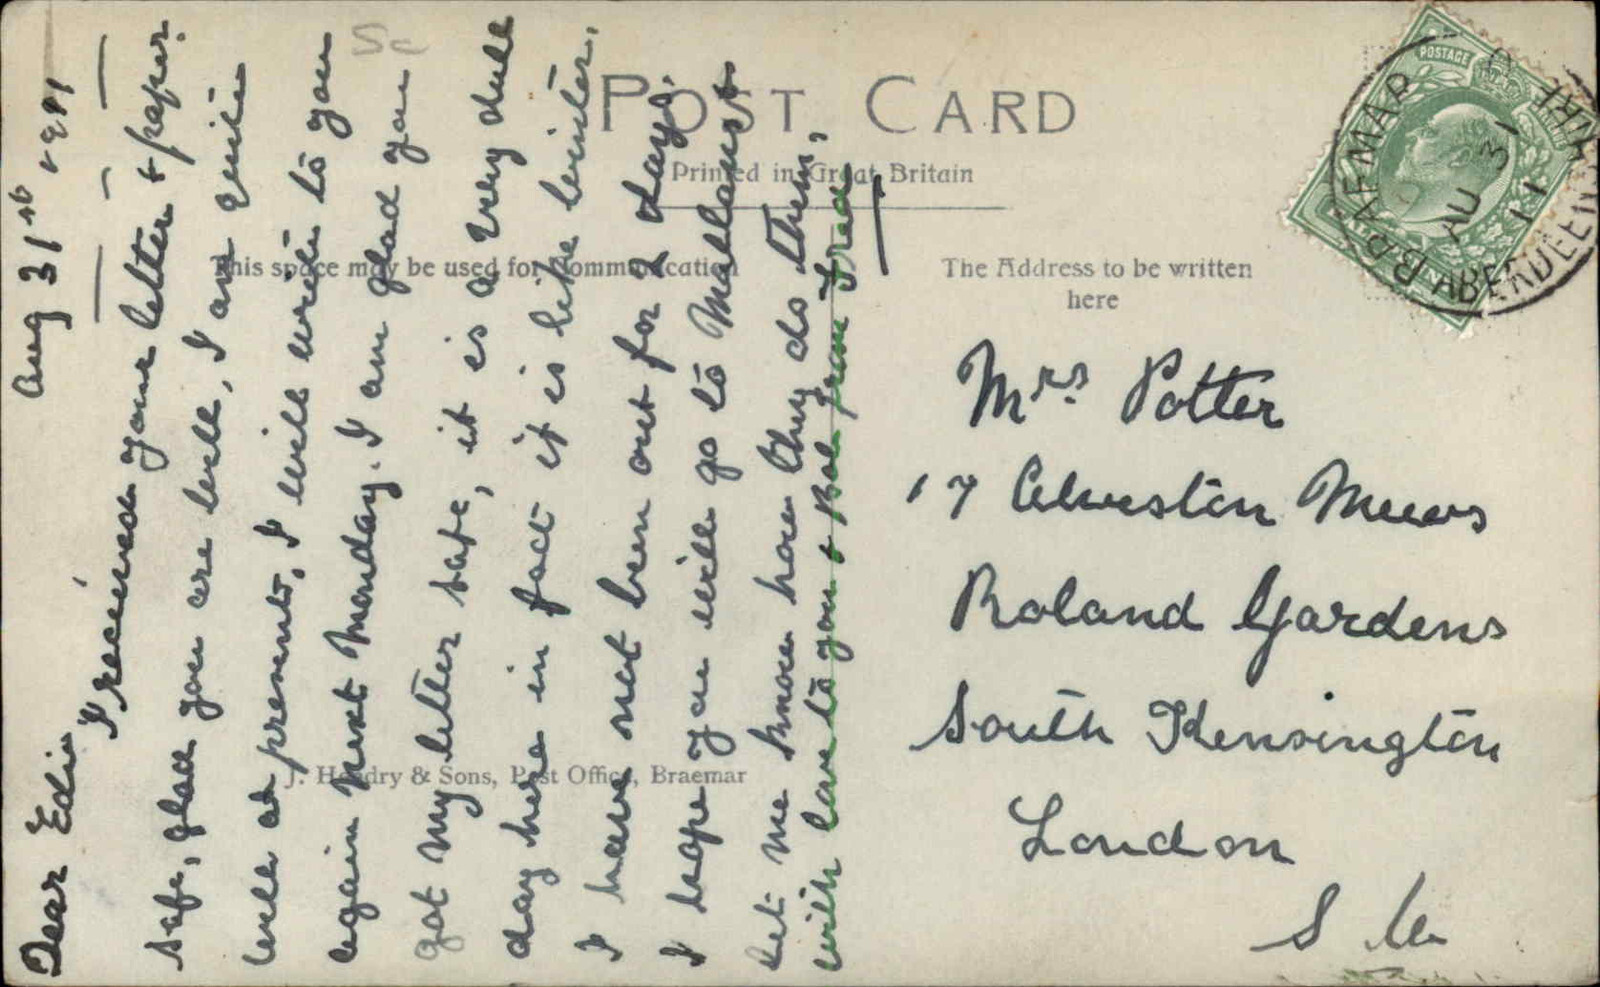 Aug 31st 1911
Dear Edie
I received your letter & paper
safe, glad you are well, I am quite
well at present, I will write to you
again next Monday. I am glad you
got my letter safe, it is a very dull
day here in fact it is like winter,
I have not been out for 2 days.
I hope you will go to Mallams &
let me know how they do them,
with love to you & Bob from Fred
Sc
POST CARD
Printed in Great Britain
This space may be used for Communication
The Address to be written
here
J. Hendry & Sons, Post Office, Braemar
POSTAGE
BRAEMAR
AU 31
11
ABERDEENSHIRE
Mrs. Potter
17 Alveston Mews
Roland Gardens
South Kensington
London
S W